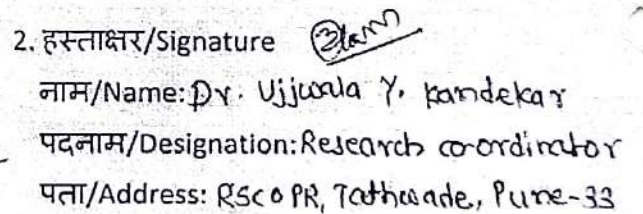 2. हस्ताक्षर/Signature
नाम/Name: Dr. Ujjwala Y. Kandekar
पदनाम/Designation: Research co-ordinator
पता/Address: RSCOPR, Tathwade, Pune-33